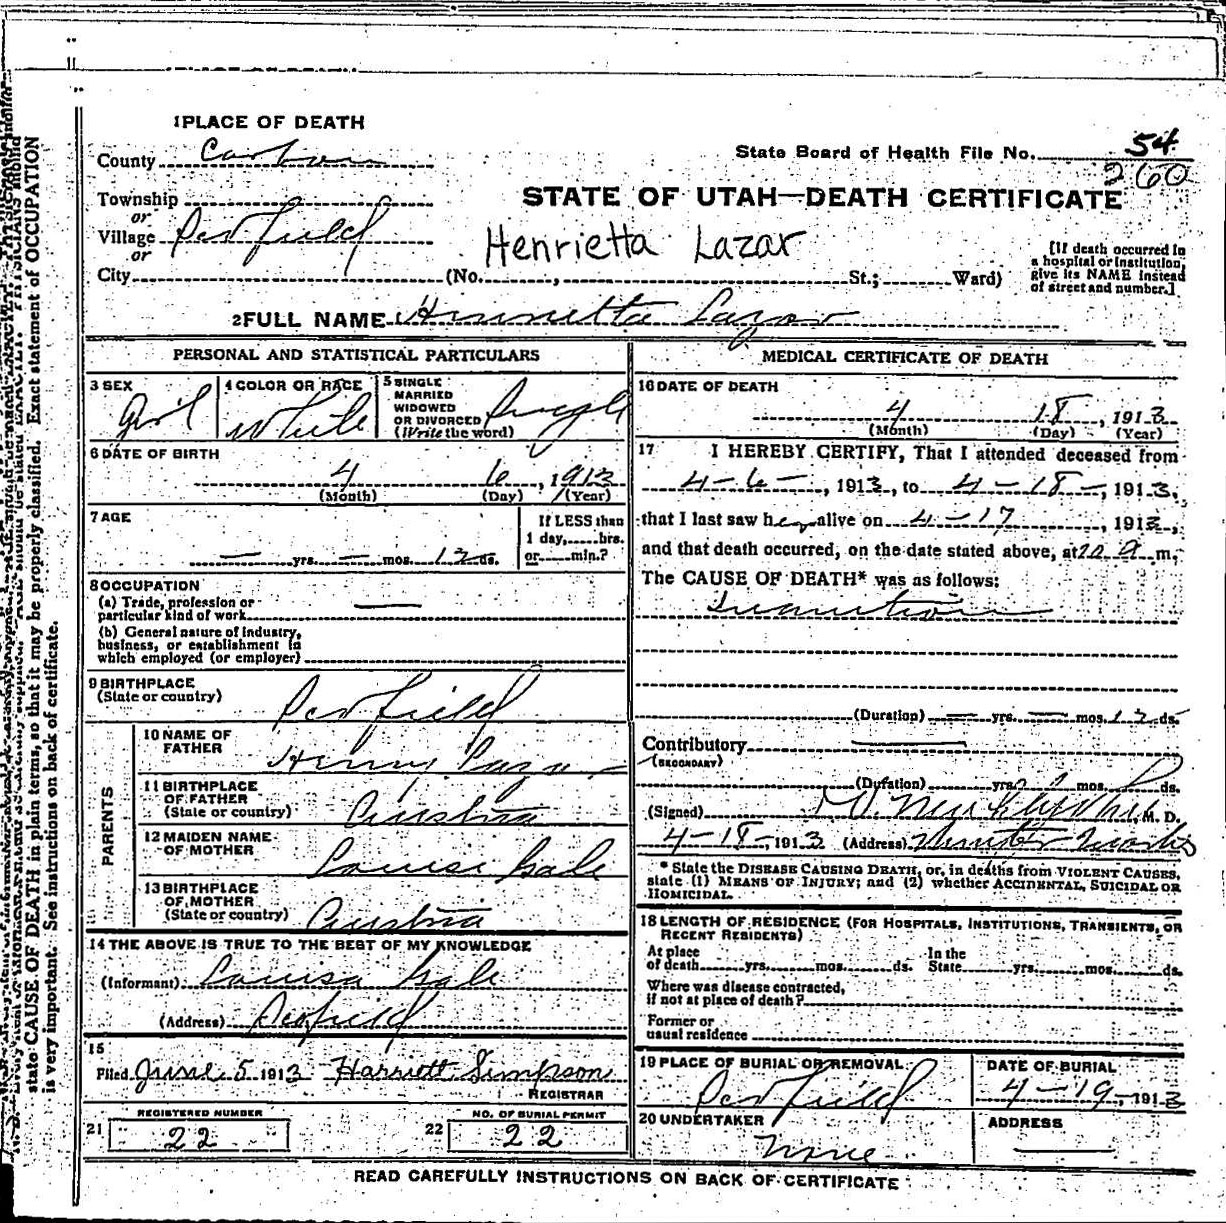 1 PLACE OF DEATH
County Carbon
State Board of Health File No. 54
260
Township
or
Village
or
City (No. , St.; Ward)
STATE OF UTAH—DEATH CERTIFICATE
Henrietta Lazar
[If death occurred in
a hospital or institution,
give its NAME instead
of street and number.]
2 FULL NAME Henrietta Lazar
PERSONAL AND STATISTICAL PARTICULARS
3 SEX
Girl
4 COLOR OR RACE
White
5 SINGLE
MARRIED
WIDOWED
OR DIVORCED
(Write the word)
Single
6 DATE OF BIRTH
4 6, 1913
(Month) (Day) (Year)
7 AGE
— yrs. — mos. 12 ds.
If LESS than
1 day, hrs.
or min.?
8 OCCUPATION
(a) Trade, profession or
particular kind of work —
(b) General nature of industry,
business, or establishment in
which employed (or employer)
9 BIRTHPLACE
(State or country)
PARENTS
10 NAME OF
FATHER
Henry Lazar
11 BIRTHPLACE
OF FATHER
(State or country)
Austria
12 MAIDEN NAME
OF MOTHER
Louise
13 BIRTHPLACE
OF MOTHER
(State or country)
Austria
14 THE ABOVE IS TRUE TO THE BEST OF MY KNOWLEDGE
(Informant) Louisa
(Address)
15
Filed June 5 1913 Harriett Simpson
REGISTRAR
21 REGISTERED NUMBER
22
22 NO. OF BURIAL PERMIT
22
MEDICAL CERTIFICATE OF DEATH
16 DATE OF DEATH
4 18, 1913
(Month) (Day) (Year)
17 I HEREBY CERTIFY, That I attended deceased from
4-6-, 1913, to 4-18-, 1913,
that I last saw her alive on 4-17, 1913,
and that death occurred, on the date stated above, at m.
The CAUSE OF DEATH* was as follows:
Inanition
(Duration) — yrs. — mos. 12 ds.
Contributory —
(SECONDARY)
(Duration) yrs. mos. ds.
(Signed) M. D.
4-18-, 1913 (Address)
* State the DISEASE CAUSING DEATH, or, in deaths from VIOLENT CAUSES,
state (1) MEANS OF INJURY; and (2) whether ACCIDENTAL, SUICIDAL OR
HOMICIDAL.
18 LENGTH OF RESIDENCE (FOR HOSPITALS, INSTITUTIONS, TRANSIENTS, OR
RECENT RESIDENTS)
At place
of death yrs. mos. ds.
In the
State yrs. mos. ds.
Where was disease contracted,
if not at place of death?
Former or
usual residence
19 PLACE OF BURIAL OR REMOVAL
DATE OF BURIAL
4-19, 1913
20 UNDERTAKER
None
ADDRESS
—
READ CAREFULLY INSTRUCTIONS ON BACK OF CERTIFICATE
state CAUSE OF DEATH in plain terms, so that it may be properly classified. Exact statement of OCCUPATION
is very important. See instructions on back of certificate.